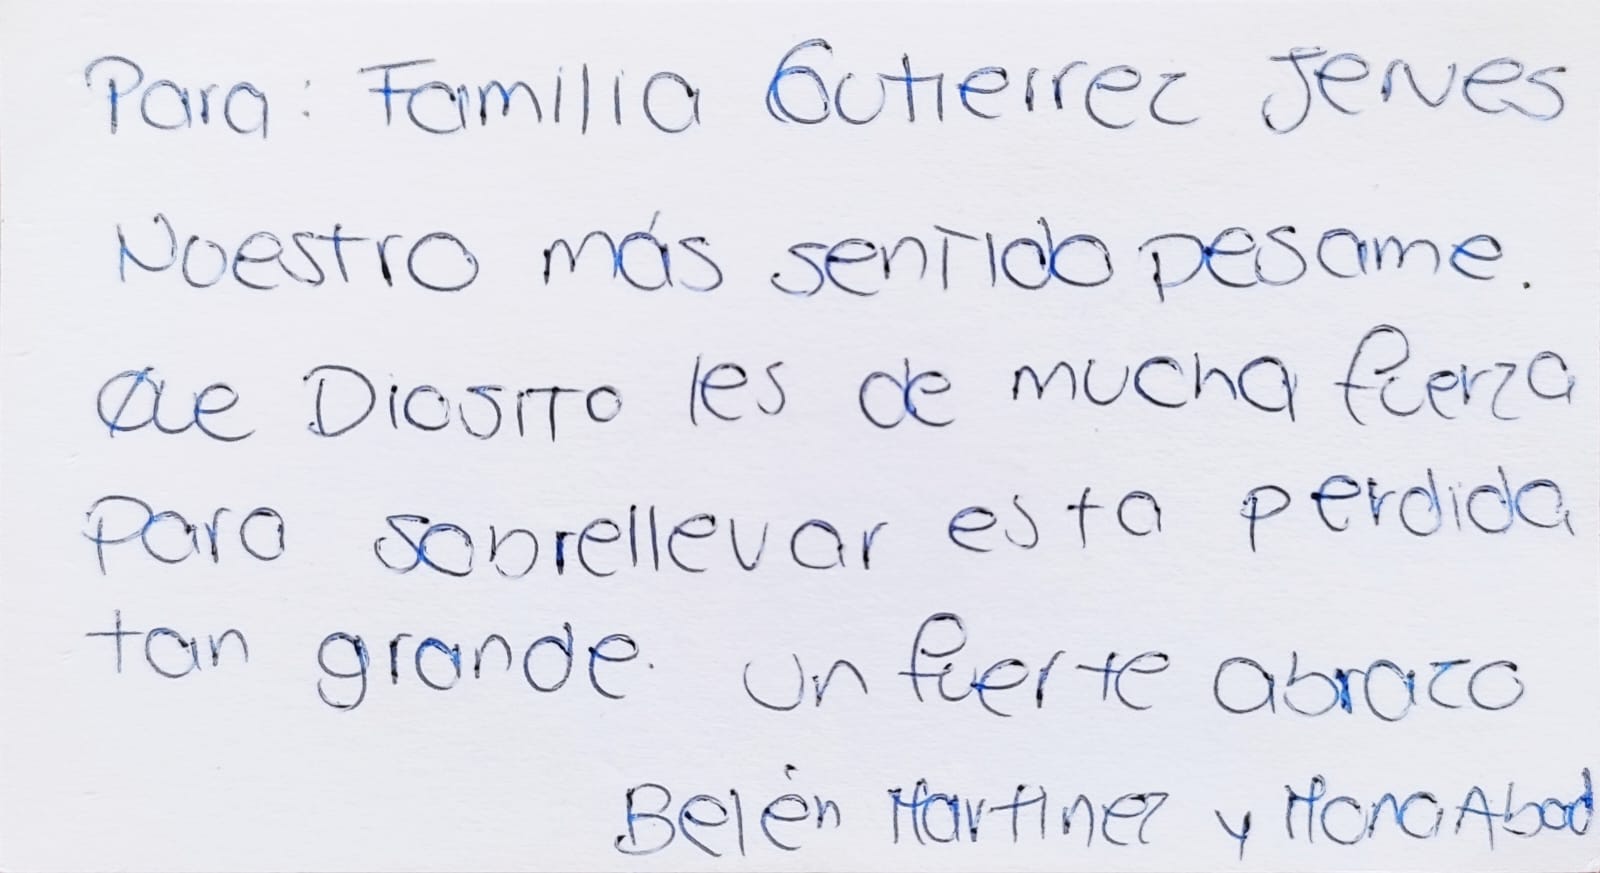 Para: Familia Gutierrez Jerves
Nuestro más sentido pesame.
Que Diosito les de mucha fuerza
Para sobrellevar esta perdida
tan grande. Un fuerte abrazo
Belén Martinez y Mona Abad